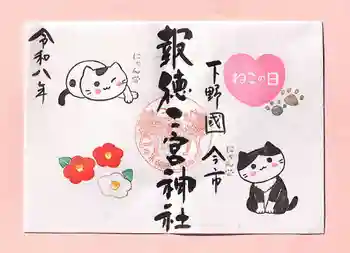 ねこの日
下野國 今市
報徳二宮神社
にゃん芯
にゃん芯
令和八年